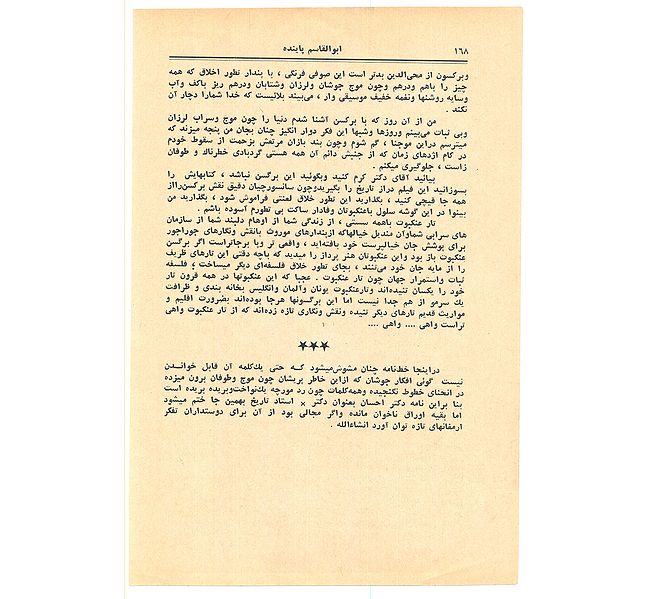 ۱۶۸
ابوالقاسم پاینده
وبرگسون از محی‌الدین بدتر است این صوفی فرنگی ، با بندار تطور اخلاق که همه
چیز را باهم ودرهم وچون موج جوشان ولرزان وشتابان ودرهم ریز باکف وآب
وسایه روشنها ونغمه خفیف موسیقی وار ، می‌بیند بلائیست که خدا شمارا دچار آن
نکند .
من از آن روز که با برگسن آشنا شدم دنیا را چون موج وسراب لرزان
وبی ثبات می‌بینم وروزها وشبها این فکر دوار انگیز چنان بجان من پنجه میزند که
میترسم دراین موجنا ، گم شوم وچون بند بازان مرتعش بزحمت از سقوط خودم
در کام اژدهای زمان که از جنبش دائم آن همه هستی گردبادی خطرناك و طوفان
زاست ، جلوگیری میکنم .
بیائید آقای دکتر کرم کنید وبگوئید این برگسن نباشد ، کتابهایش را
بسوزانید این فیلم دراز تاریخ را بگیریدوچون سانسورچیان دقیق نقش برگسن‌رااز
همه جا قیچی کنید ، بگذارید این تطور خلاق لعنتی فراموش شود ، بگذارید من
بینوا در این گوشه سلول باعنکبوتان وفادار ساکت بی تطورم آسوده باشم .
تار عنکبوت باهمه سستی ، از زندگی شما از اوهام دلبند شما از سازمان
های سرابی شماوآن مندیل خیالهاکه ازبندارهای موروث بانقش ونگارهای جوراجور
برای پوشش جان خیالپرست خود بافته‌اید ، واقعی تر وپا برجاتراست اگر برگسن
عنکبوت باز بود واین عنکبوتان هنر پرداز را میدید که باچه دقتی این تارهای ظریف
را از مایه جان خود می‌تنند ، بجای تطور خلاق فلسفه‌ای دیگر میساخت ، فلسفه
ثبات واستمرار جهان چون تار عنکبوت . عجبا که این عنکبوتها در همه قرون تار
خود را یکسان تنیده‌اند وتارعنکبوت یونان وآلمان وانگلیس بخانه بندی و ظرافت
یك سرمو از هم جدا نیست اما این برگسونها هرجا بوده‌اند بضرورت اقلیم و
مواریث قدیم تارهای دیگر تنیده ونقش ونگاری تازه زده‌اند که از تار عنکبوت واهی
تراست واهی .... واهی ....
★★★
دراینجا خط‌نامه چنان مشوش‌میشود کــه حتی یك‌کلمه آن قابل خوانــدن
نیست گوئی افکار جوشان که ازاین خاطر پریشان چون موج وطوفان برون میزده
در انحنای خطوط نگنجیده وهمه‌کلمات چون رد مورچه یك‌نواخت‌وبریده بریده است
بنا براین نامه دکتر احسان بعنوان دکتر × استاد تاریخ بهمین جا ختم میشود
اما بقیه اوراق ناخوان مانده واگر مجالی بود از آن برای دوستداران تفکر
ارمغانهای تازه توان آورد انشاءالله .